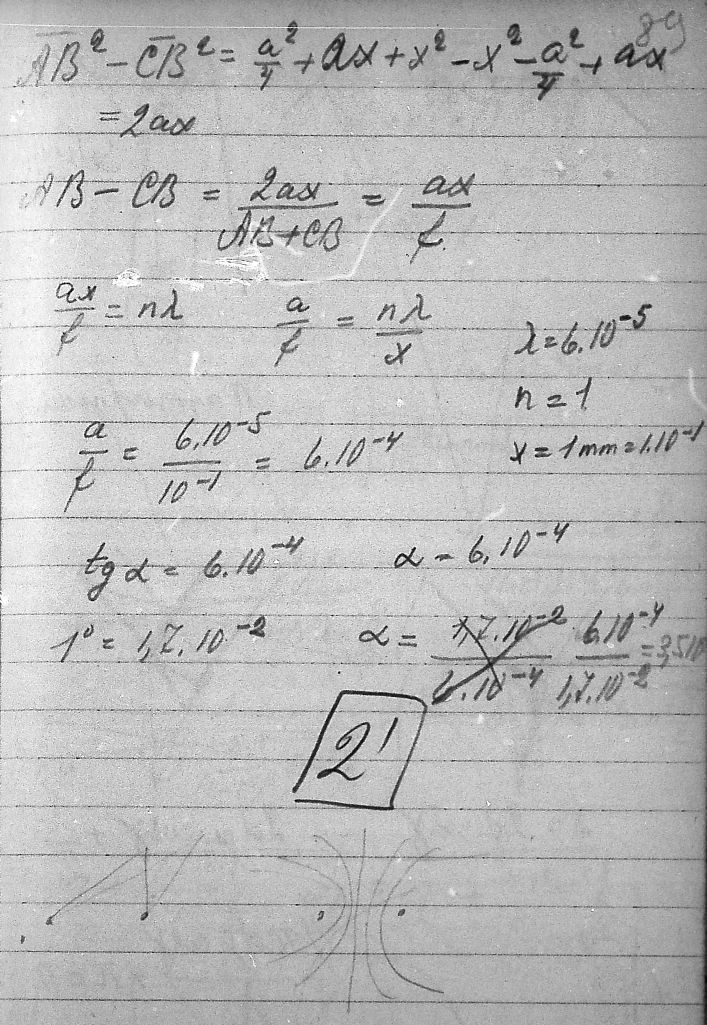 89
AB² - CB² = a²/4 + ax + x² - x² - a²/4 + ax
= 2ax
AB - CB = 2ax/(AB+CB) = ax/f
ax/f = nλ a/f = nλ/x λ = 6.10⁻⁵
n = 1
a/f = 6.10⁻⁵/10⁻¹ = 6.10⁻⁴ x = 1mm = 1.10⁻¹
tg α = 6.10⁻⁴ α = 6.10⁻⁴
1° = 1,7.10⁻² α = 1,7.10⁻²/6.10⁻⁴ 6.10⁻⁴/1,7.10⁻² = 3,5.10
2'